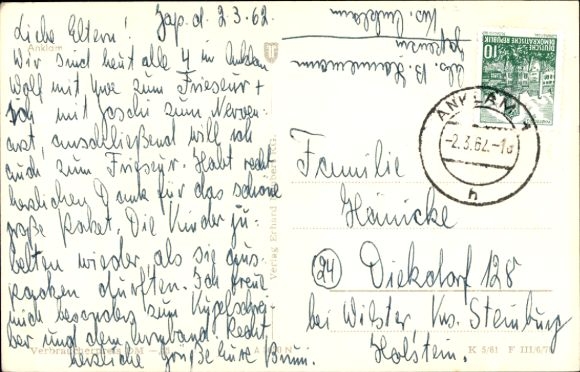 Liebe Eltern! Jap. d. 2.3.62.
Anklam
Wir sind heut alle 4 in Anklam
Wolf mit Uwe zum Friseur +
Ich mit Joschi zum Nerven-
arzt, anschließend will ich
auch zum Friseur. Habt recht
herzlichen Dank für das schöne
große Paket. Die Kinder ju-
belten wieder, als sie aus-
packen durften. Ich freue
mich besonders zum Kugelschrei-
ber und dem Armband. Recht
herzliche Grüße Eure
Verbraucherpreis DM
Abs. B.
Krs. Anklam
DEUTSCHE
DEMOKRATISCHE REPUBLIK
10
ANKLAM 1
-2.3.62.-18
h
Familie
Hänicke
(24) Diekdorf 128
bei Wilster Krs. Steinburg
Holstein.
Verlag Erhard
K 5/61 F III/6/